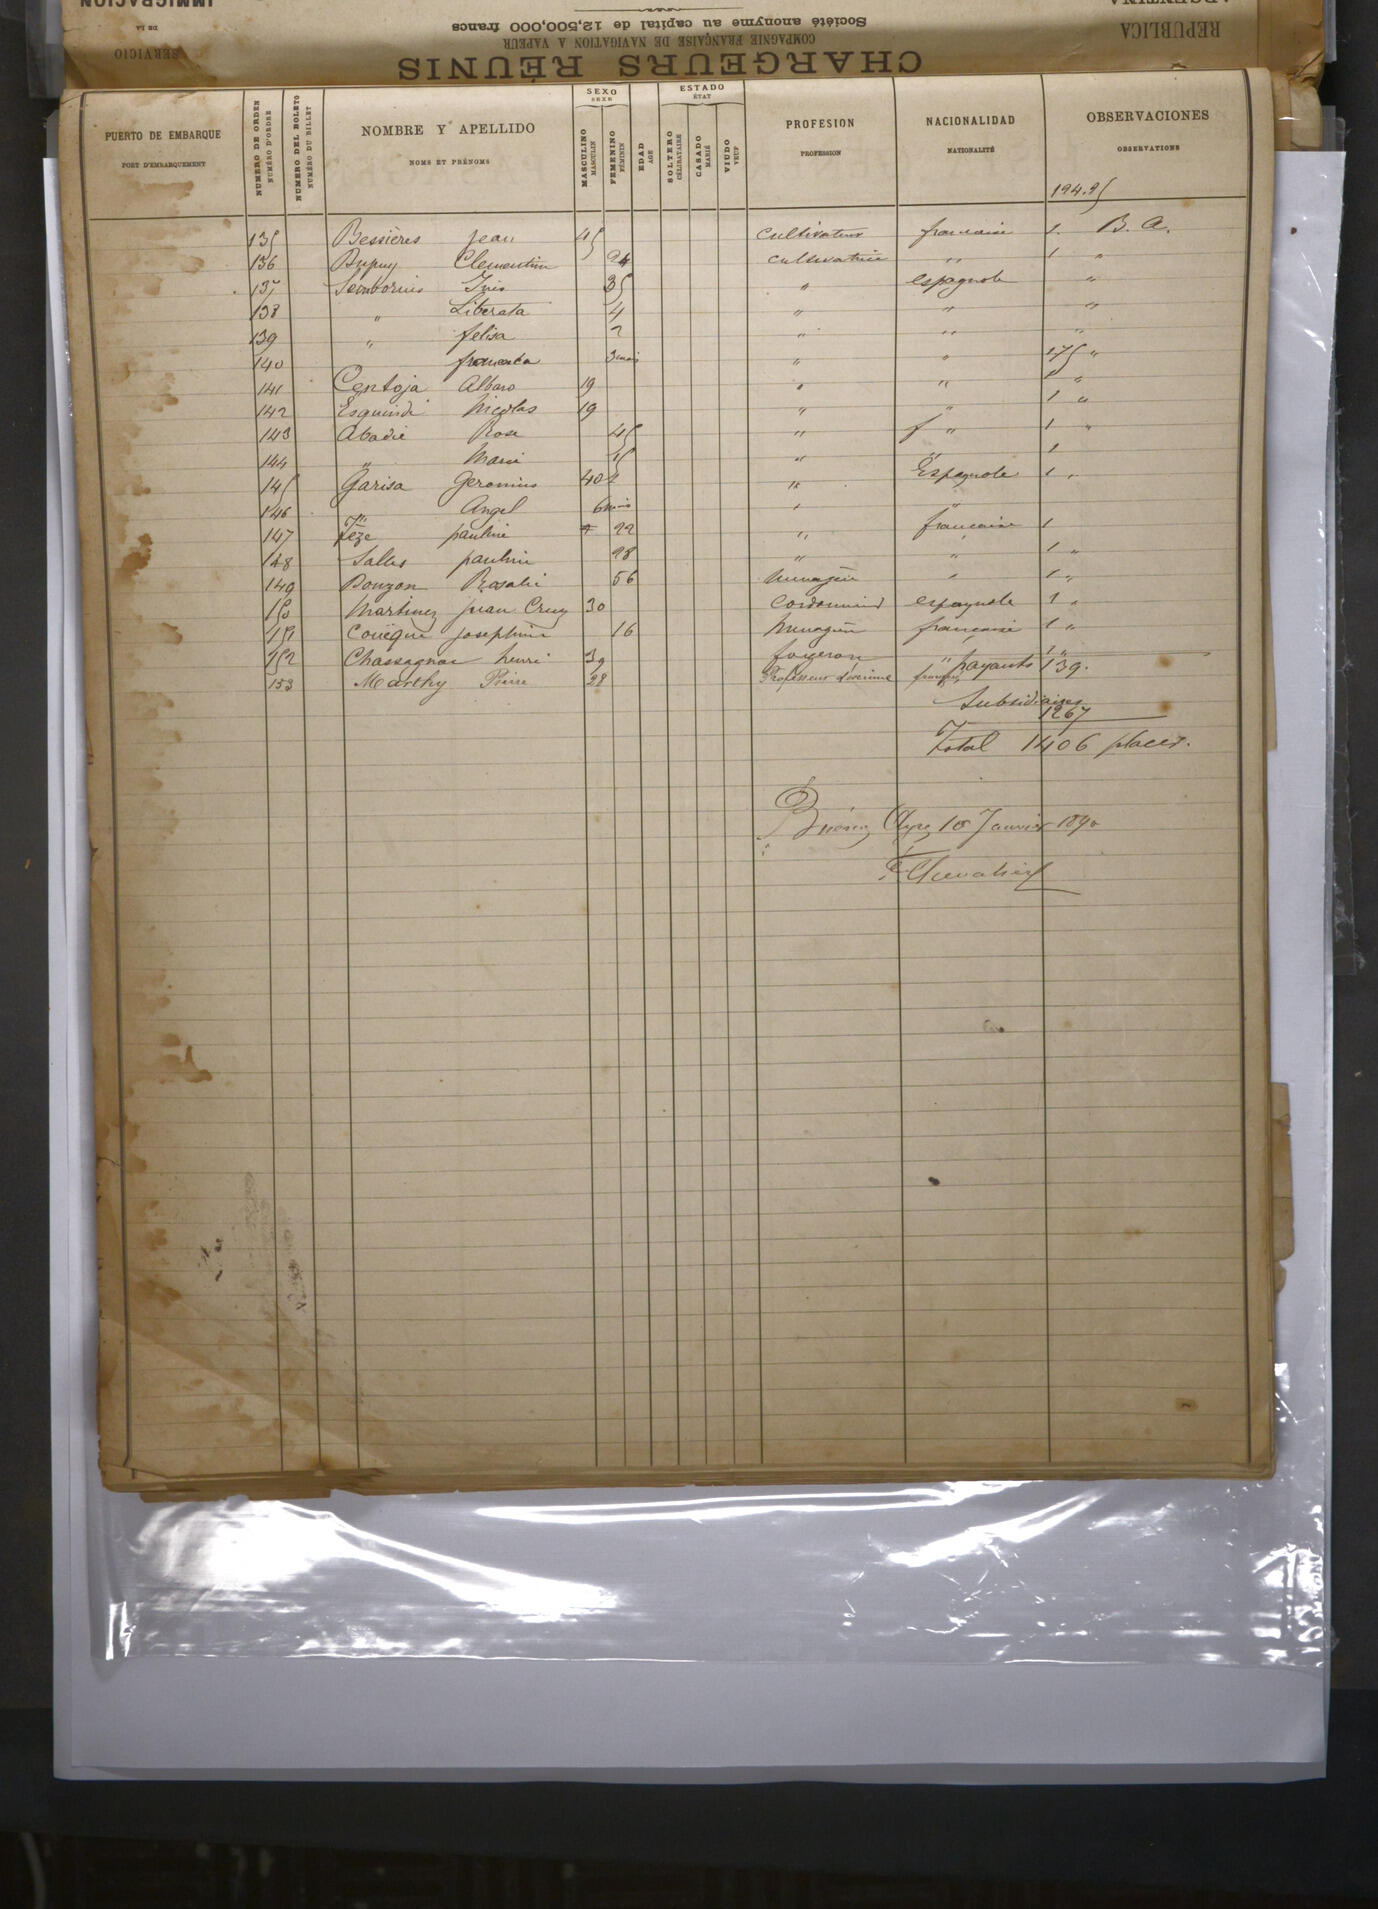 IMMIGRACION
DE LA
SERVICIO
ARGENTINA
REPUBLICA
Société anonyme au capital de 12,500,000 francs
COMPAGNIE FRANÇAISE DE NAVIGATION A VAPEUR
CHARGEURS RÉUNIS
PUERTO DE EMBARQUE
PORT D'EMBARQUEMENT
NUMERO DE ORDEN
NUMÉRO D'ORDRE
NUMERO DEL BOLETO
NUMÉRO DU BILLET
NOMBRE Y APELLIDO
NOMS ET PRÉNOMS
SEXO
SEXE
MASCULINO
MASCULIN
FEMENINO
FÉMININ
EDAD
AGE
ESTADO
ÉTAT
SOLTERO
CÉLIBATAIRE
CASADO
MARIÉ
VIUDO
VEUF
PROFESION
PROFESSION
NACIONALIDAD
NATIONALITÉ
OBSERVACIONES
OBSERVATIONS
135 Bessières Jean 45 Cultivateur francaise 1. B. A.
136 Dupuy Clementine 24 Cultivatrice " 1 "
137 Inés 35 " espagnole "
138 " Liberata 4 " " "
139 " felisa 2 " " "
140 3 mois " " "
141 Albaro 19 " " "
142 Nicolas 19 " " 1 "
143 Abadie Rose 45 " f " 1 "
144 " Marie 15 " " 1
145 Garisa Geronimo 40 " Espagnole 1 "
146 " Angel 6 mois " "
147 pauline 22 " francaise 1
148 Salles pauline 28 " " 1 "
149 Donzon Rosalie 56 Menagère " 1 "
150 Martinez Juan Cruz 30 Cordonnier espagnole 1 "
151 Josephine 16 Menagère francaise 1 "
152 Chassagnac henri 39 forgeron " 1 "
153 Marthy Pierre 28 Professeur d'escrime français
payants 139.
Subsidiaires 1267
Total 1406 places.
Buenos Ayres 10 Janvier 1890
Chevalier